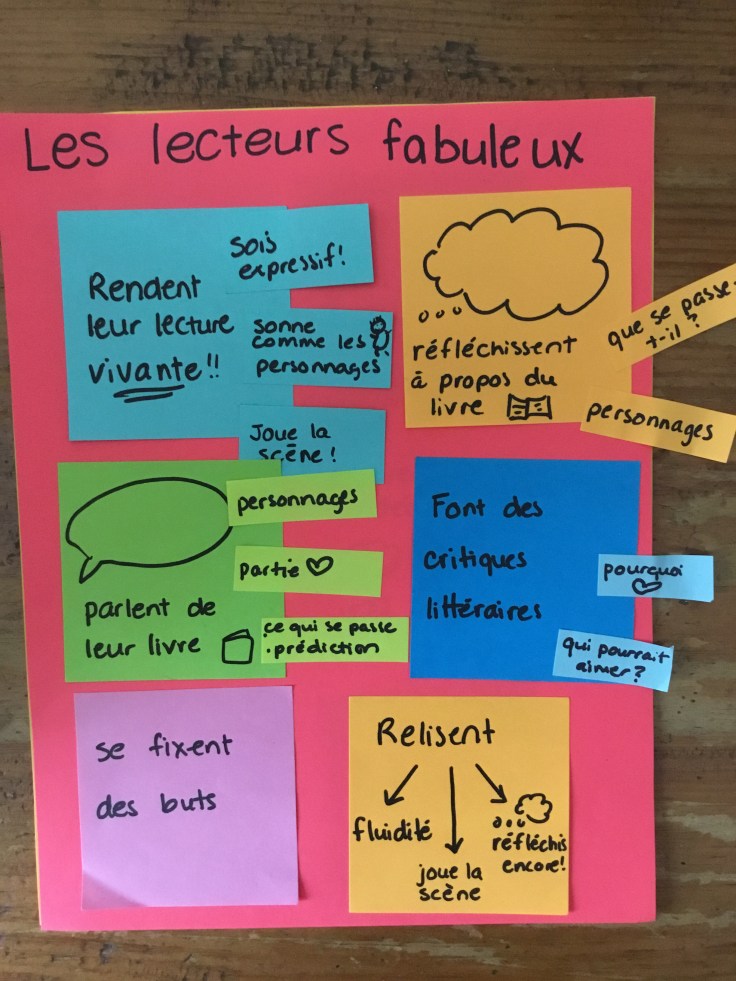 Les lecteurs fabuleux
Rendent
leur lecture
vivante!!
Sois
expressif!
sonne
comme les
personnages
Joue la
scène!
réfléchissent
à propos du
livre
que se passe-
t-il?
personnages
parlent de
leur livre
personnages
partie
ce qui se passe
.prédiction
Font des
critiques
littéraires
pourquoi
qui pourrait
aimer?
se fixent
des buts
Relisent
fluidité
joue la
scène
réfléchis
encore!